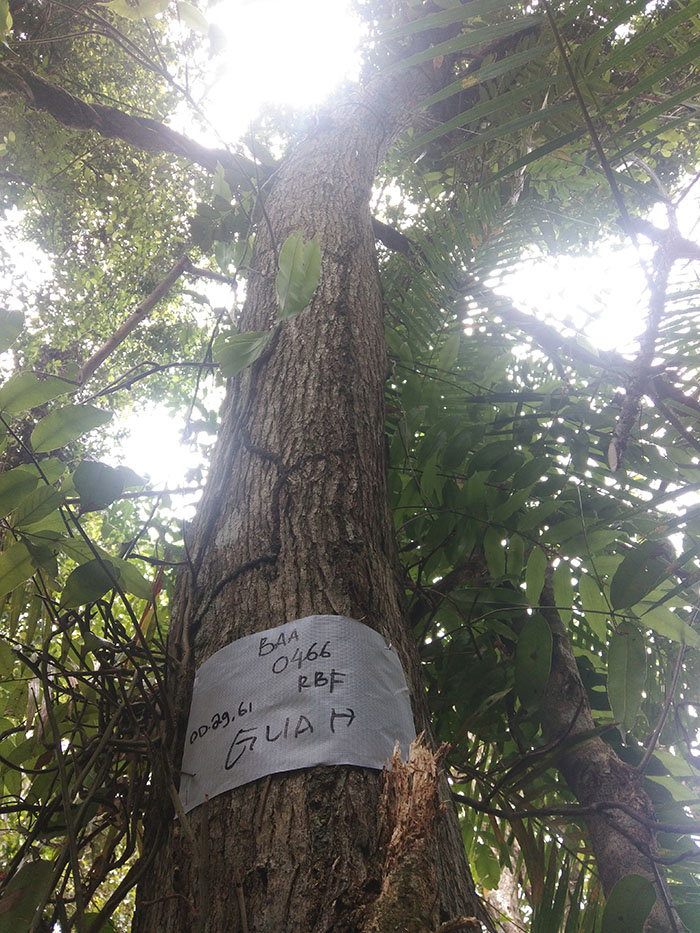 BAA
0466
RBF
OD.29.61
GUAH